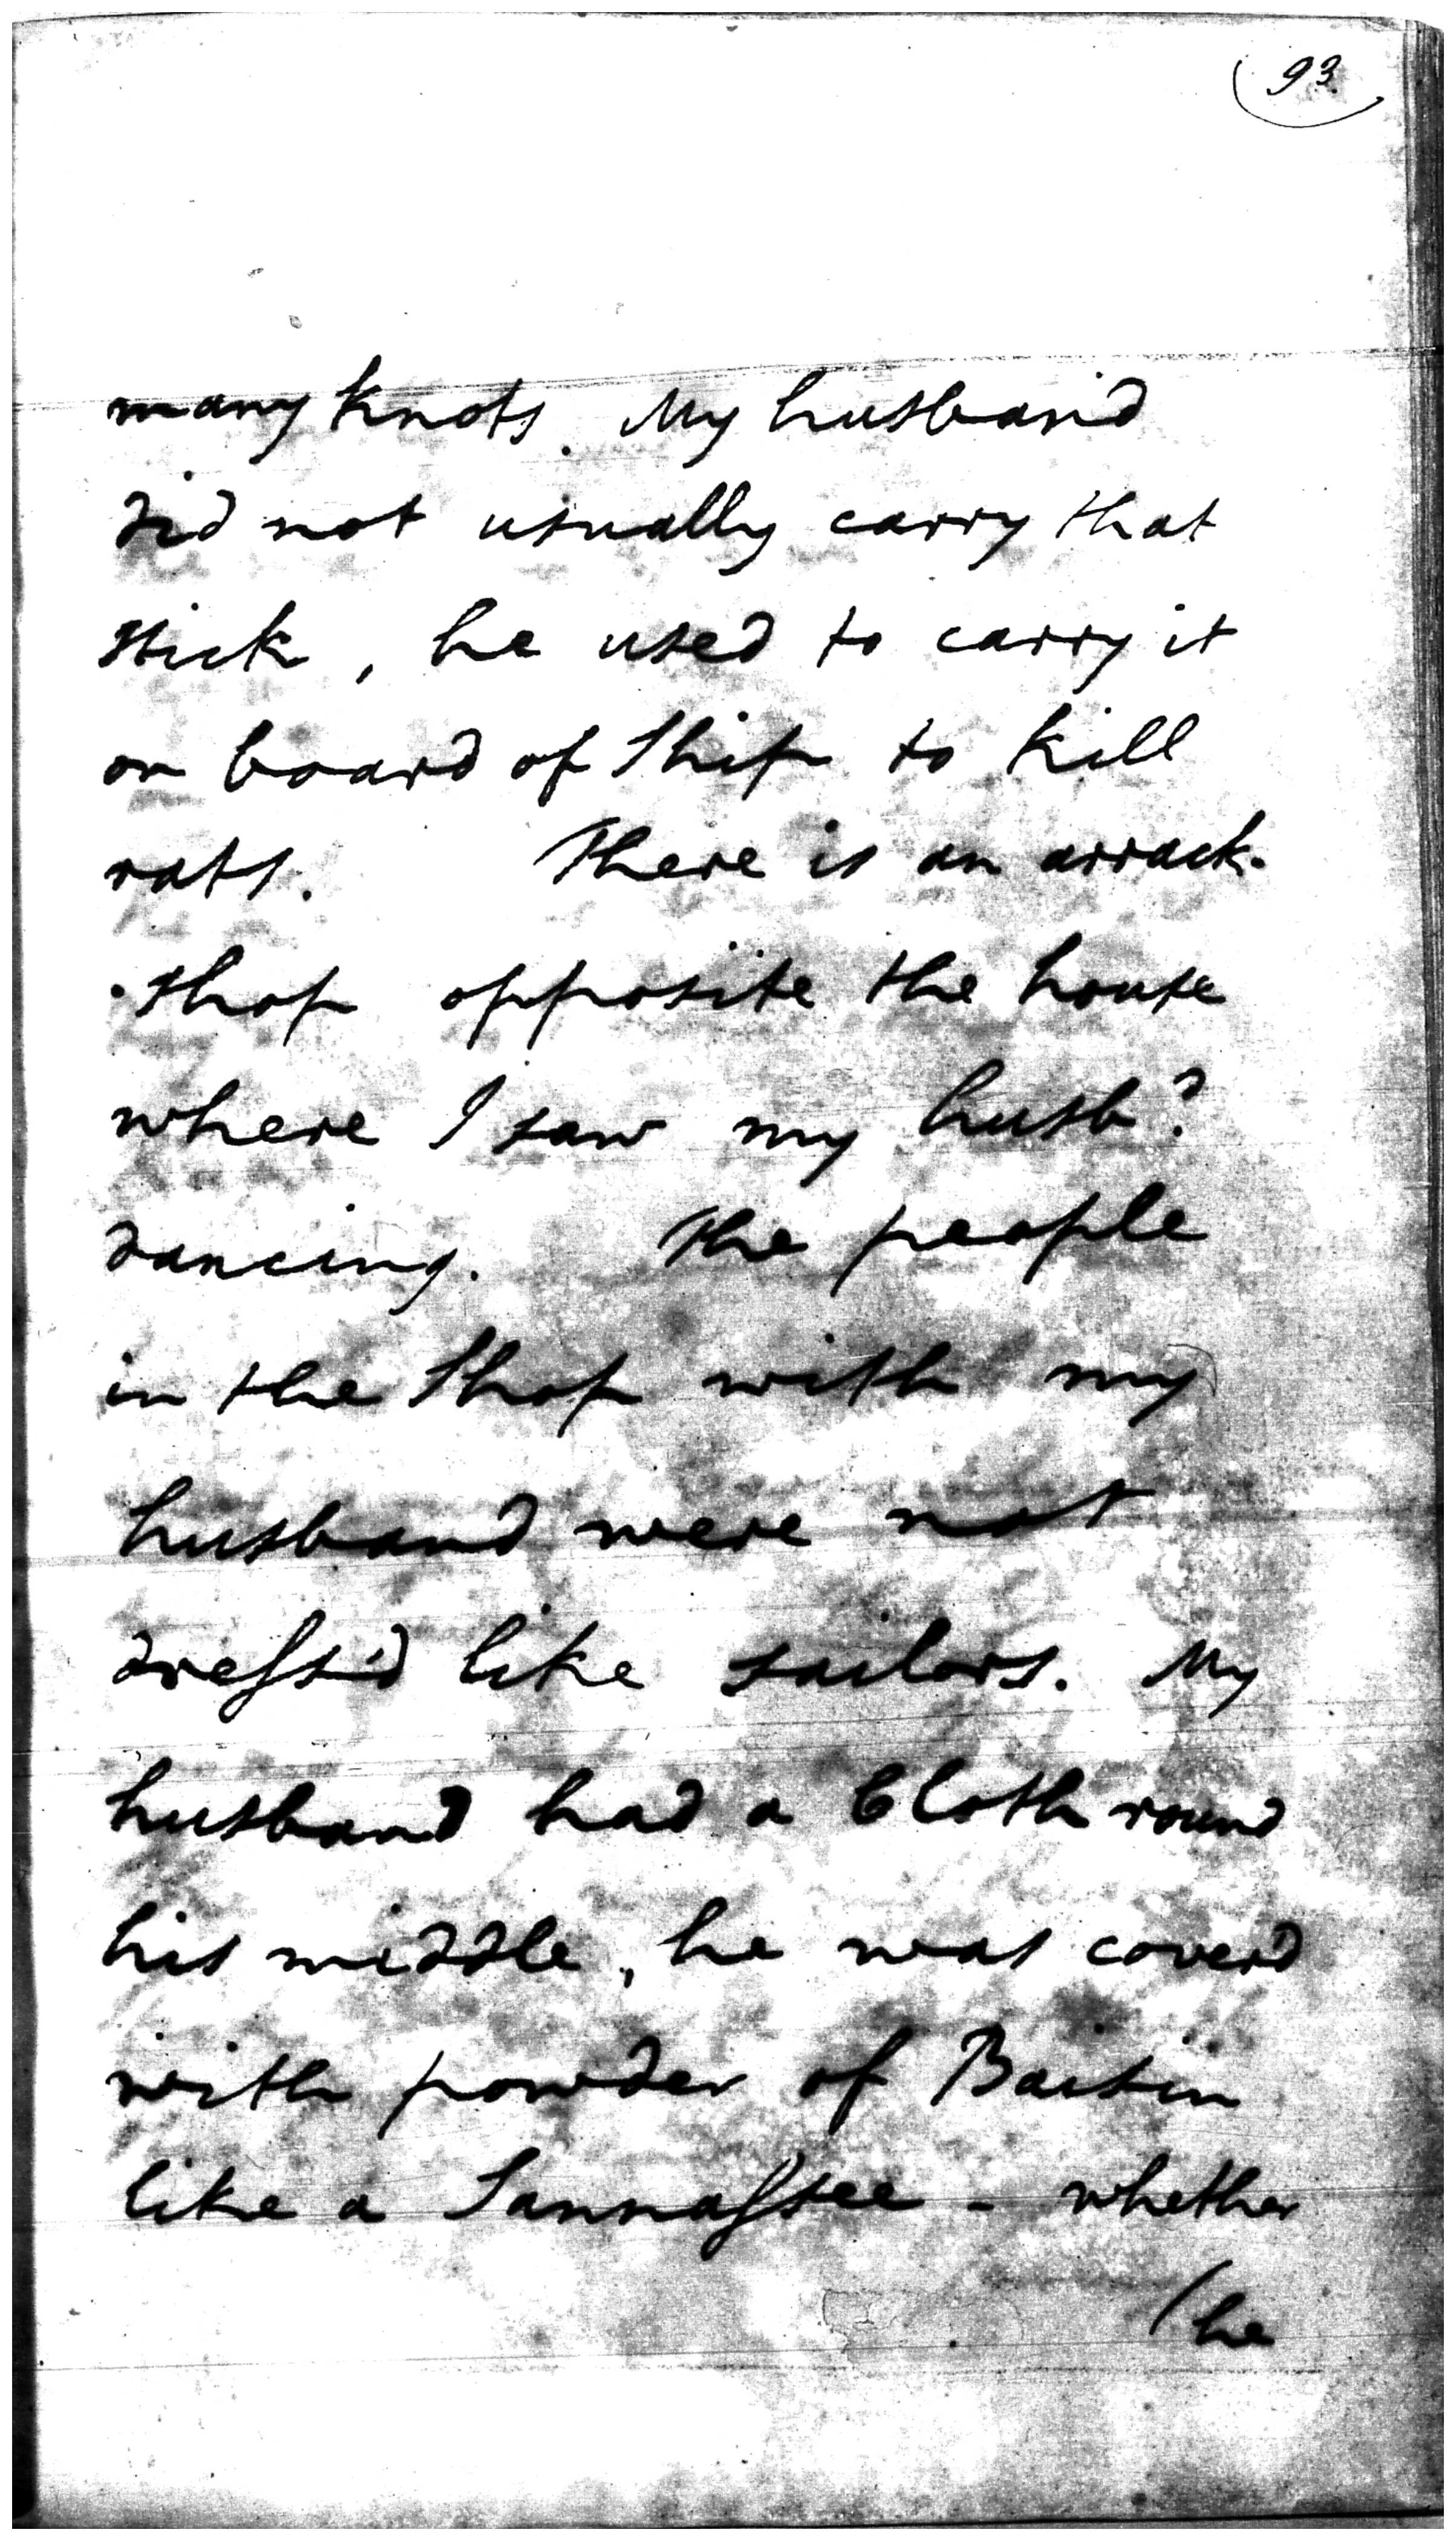 93.
many knots. My husband
did not usually carry that
stick, he used to carry it
on board of Ship to kill
rats. There is an arrack-
-shop opposite the house
where I saw my husbd.
dancing. The people
in the Shop with my
husband were not
dress'd like sailors. My
husband had a Cloth round
his middle, he was cover'd
with powder of Baisin
like a Sannassee - whether
(he